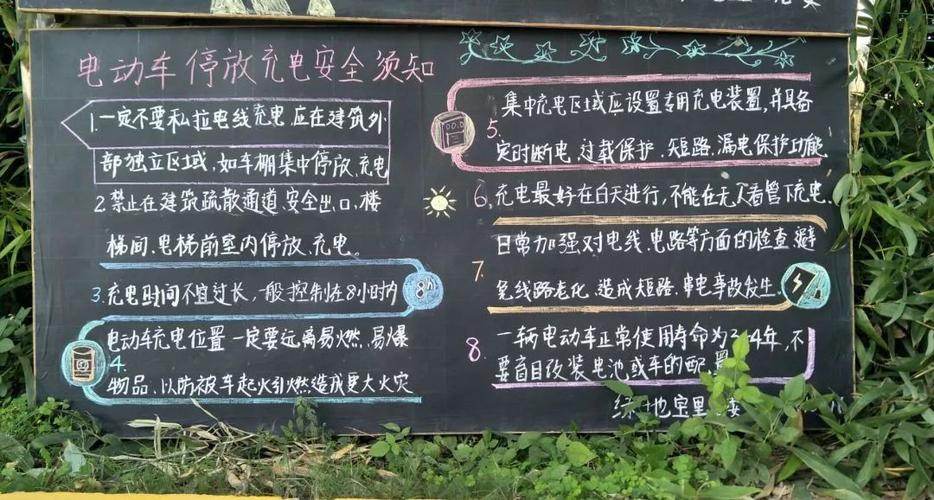 电动车停放充电安全须知
1.一定不要私拉电线充电.应在建筑外
部独立区域,如车棚集中停放.充电
2.禁止在建筑疏散通道.安全出口.楼
梯间.电梯前室内停放.充电。
3.充电时间不宜过长,一般控制在8小时内
8h
电动车充电位置一定要远离易燃.易爆
4.
物品,以防被车起火引燃造成更大火灾
集中充电区域应设置专用充电装置,并具备
5.
实时断电.过载保护.短路.漏电保护功能
6.充电最好在白天进行,不能在无人看管下充电.
日常加强对电线.电路等方面的检查.避
7.
免线路老化.造成短路.串电事故发生.
8.一辆电动车正常使用寿命为3-4年,不
要盲目改装电池或车的配置
绿地宝里